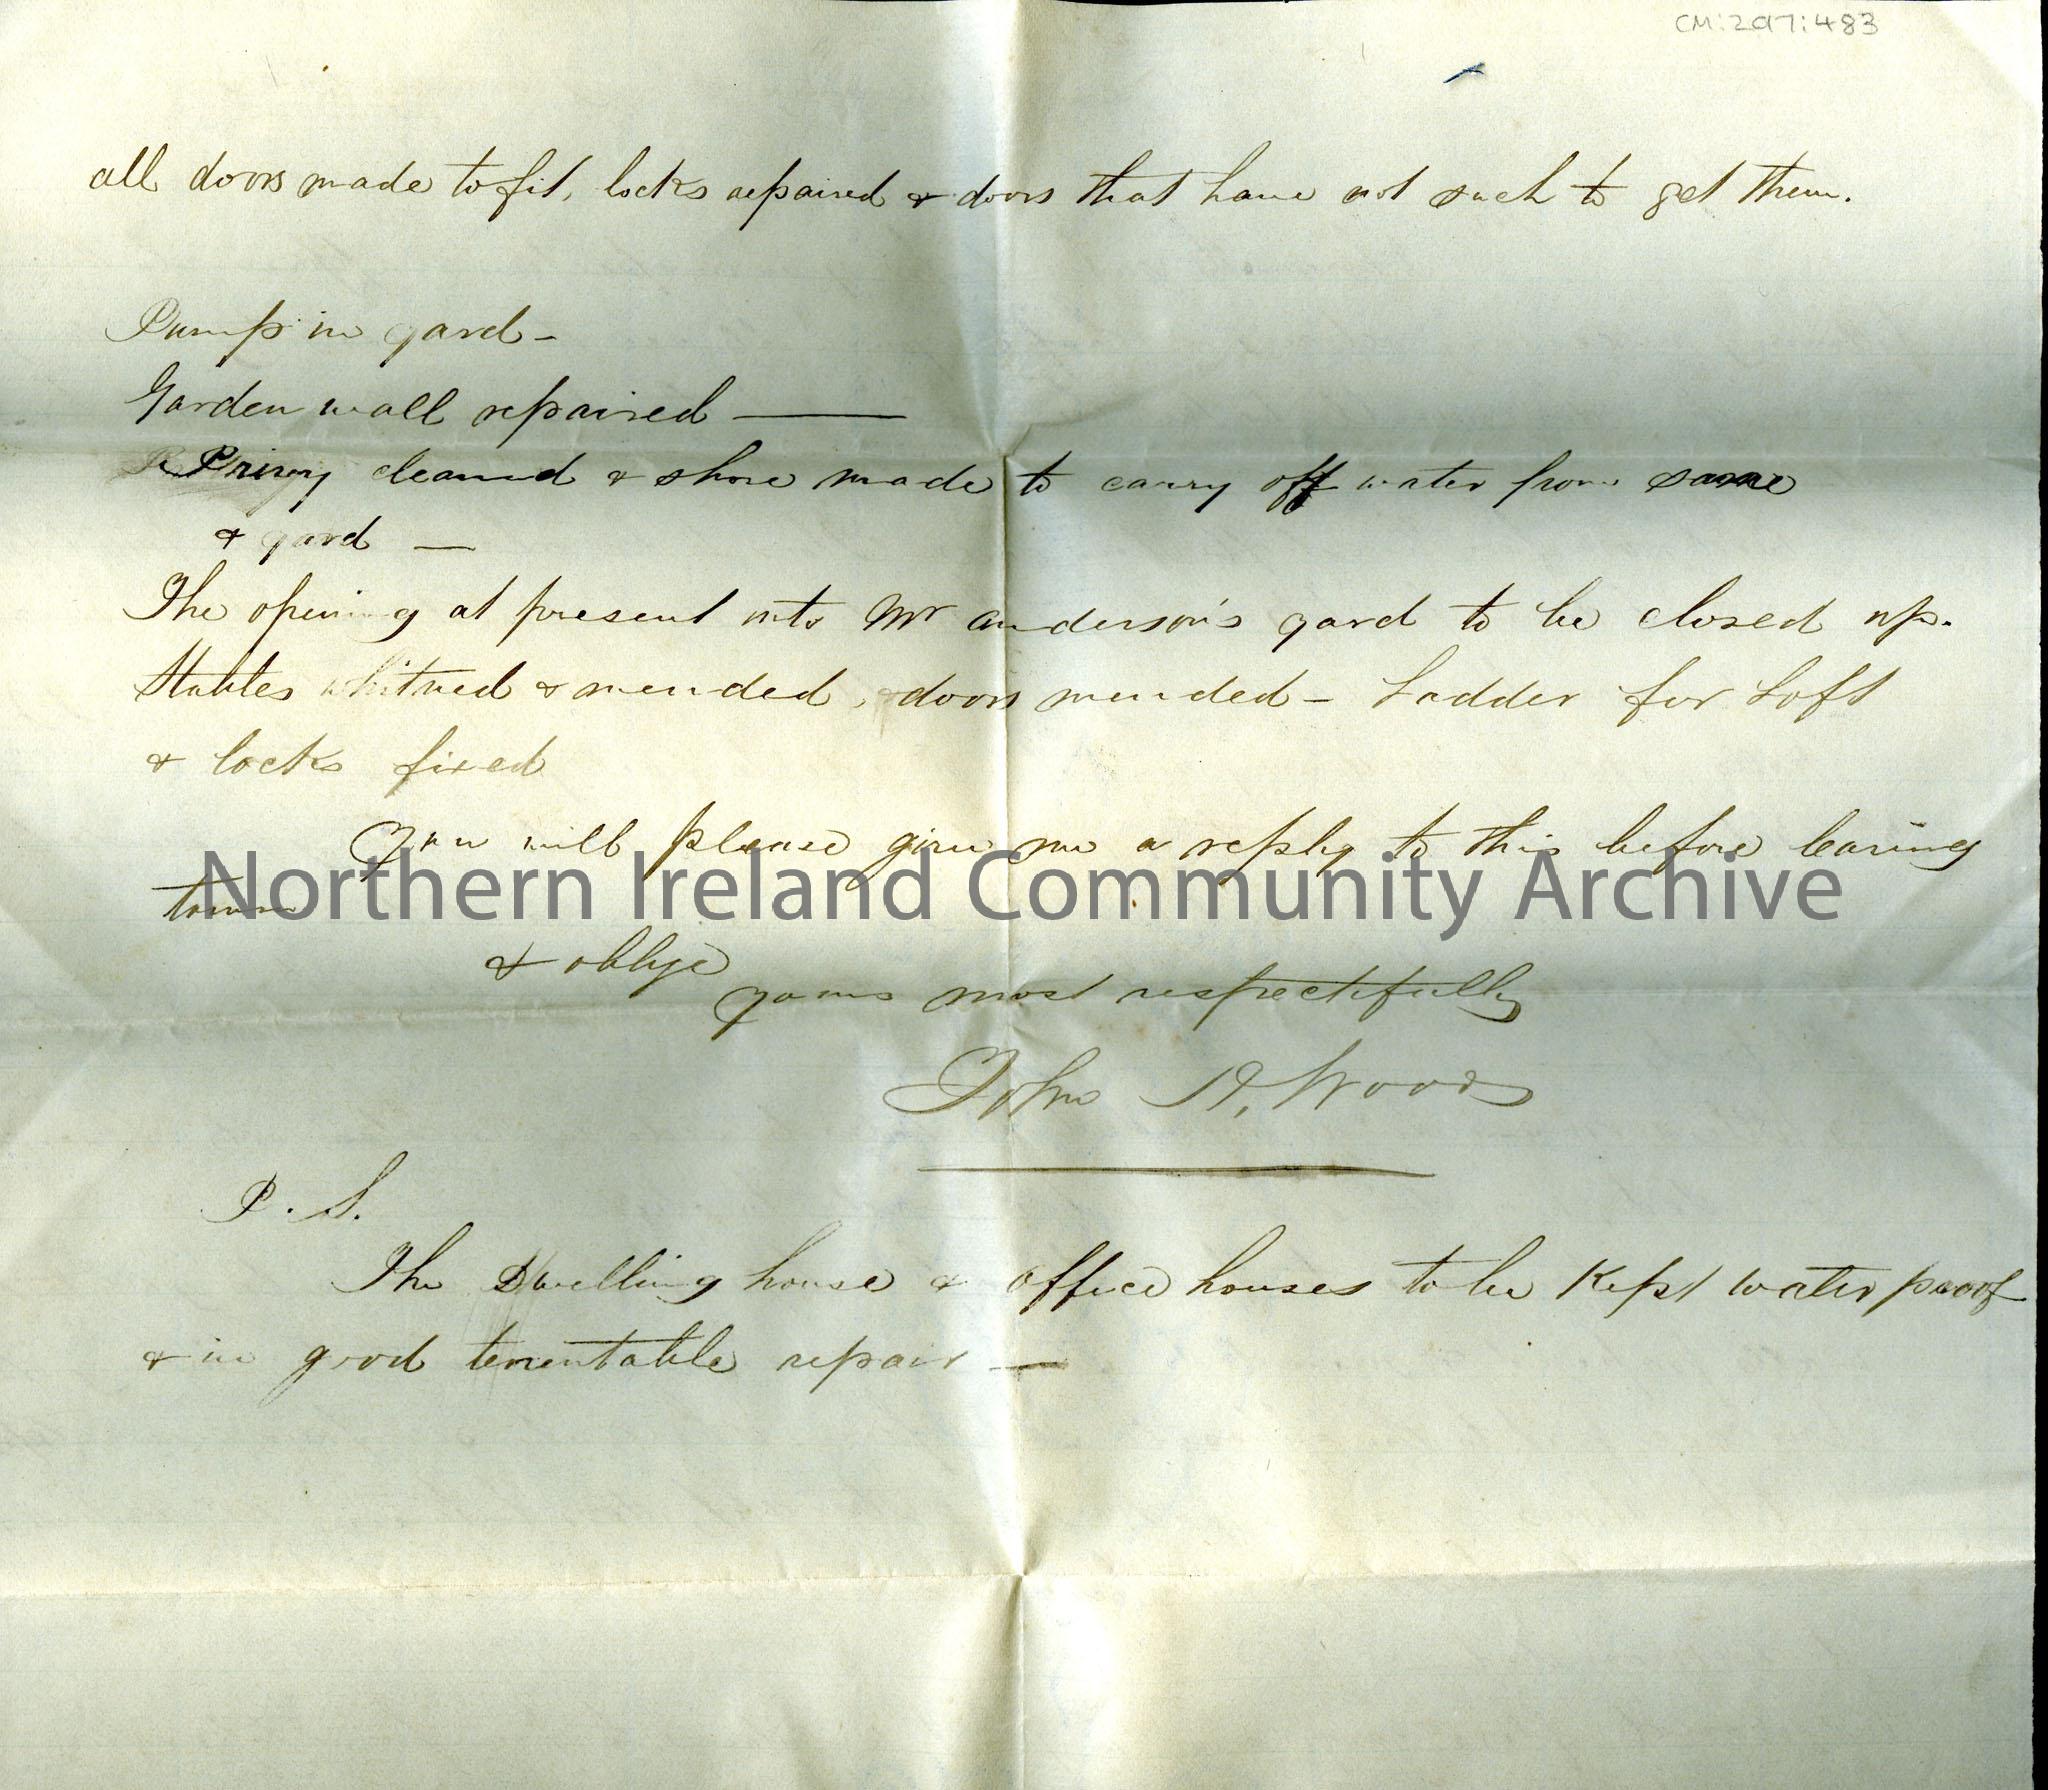 CM:297:483
all doors made to fit, locks repaired & doors that have not such to get them.
Pump in yard –
Garden wall repaired —
Privy cleaned & shore made to carry off water from same
& yard —
The opening at present into Mr Anderson's yard to be closed up.
Stables whitned & mended, & doors mended – Ladder for Loft
& locks fixed
You will please give me a reply to this before leaving
town
Northern Ireland Community Archive
& oblige
yours most respectfully
John A, Woods
P. S.
The Dwelling house & office houses to be Kept water proof
& in good tenentable repair —